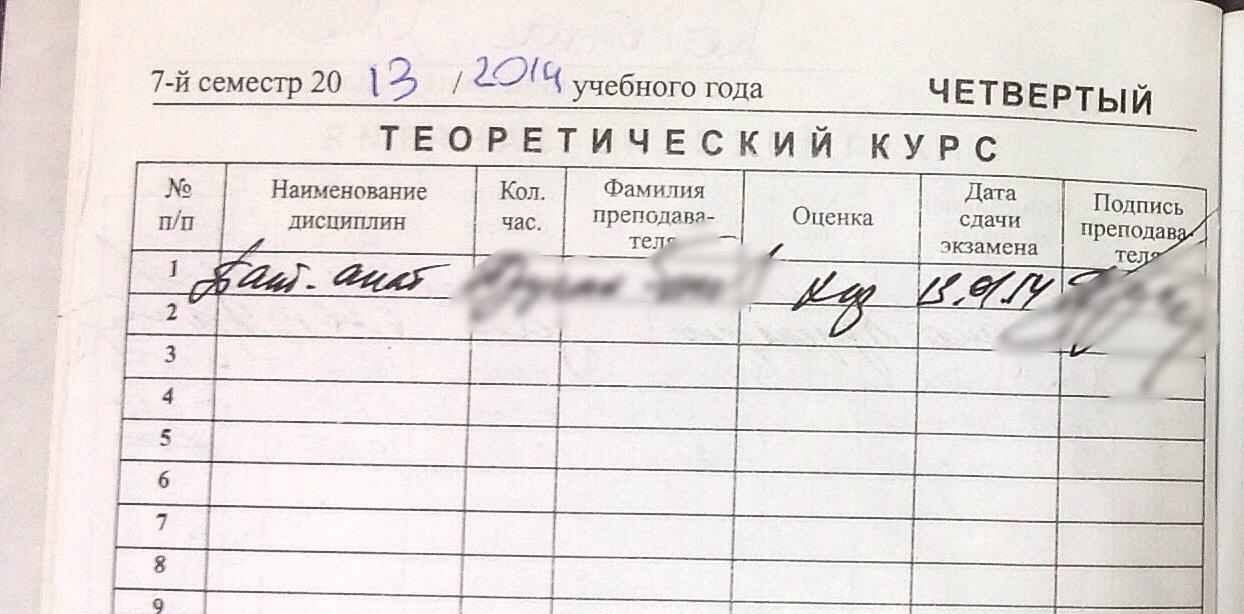 7-й семестр 20 13 / 2014 учебного года ЧЕТВЕРТЫЙ
ТЕОРЕТИЧЕСКИЙ КУРС
№ п/п Наименование дисциплин Кол. час. Фамилия преподава- теля Оценка Дата сдачи экзамена Подпись преподава- теля
1 Пат. анат 13.01.14
2
3
4
5
6
7
8
9